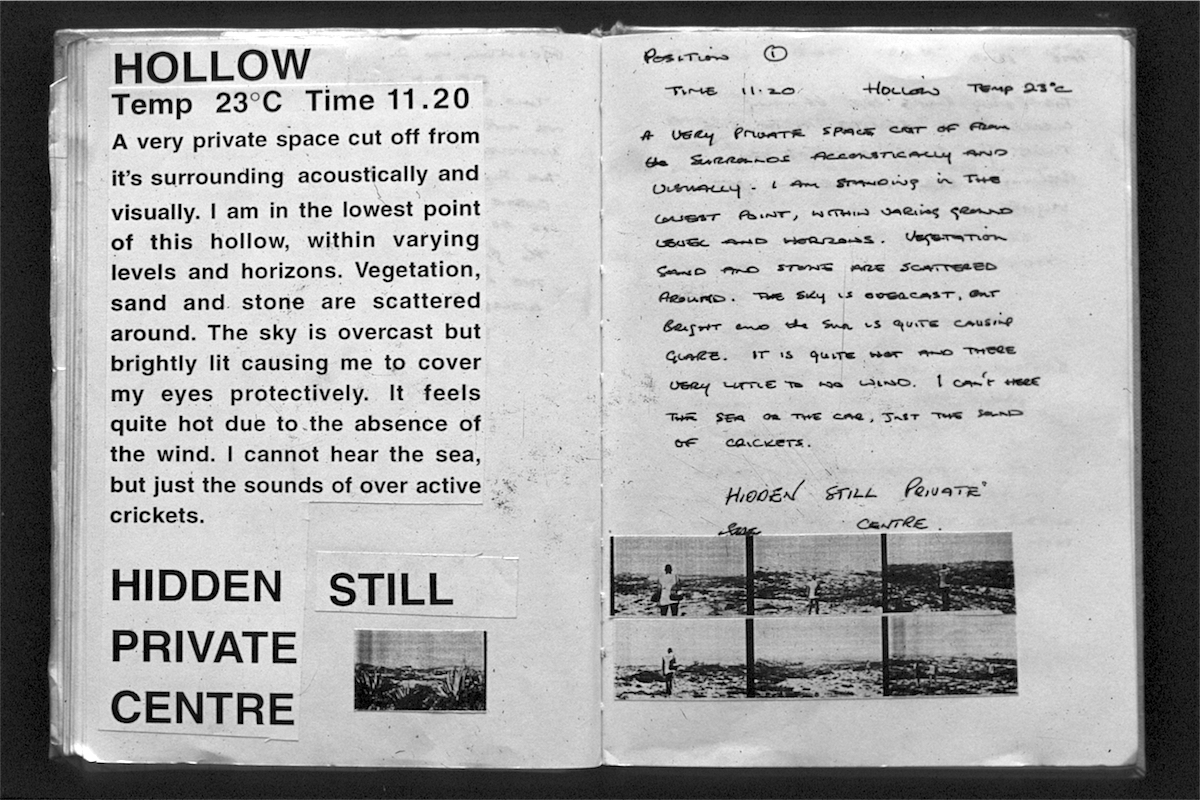 HOLLOW
Temp 23°C Time 11.20
A very private space cut off from
it's surrounding acoustically and
visually. I am in the lowest point
of this hollow, within varying
levels and horizons. Vegetation,
sand and stone are scattered
around. The sky is overcast but
brightly lit causing me to cover
my eyes protectively. It feels
quite hot due to the absence of
the wind. I cannot hear the sea,
but just the sounds of over active
crickets.
HIDDEN STILL
PRIVATE
CENTRE
POSITION ①
TIME 11.20 HOLLOW TEMP 23°C
A VERY PRIVATE SPACE CUT OF FROM
the SURROUNDS ACCOUSTICALLY AND
VISUALLY. I AM STANDING IN THE
LOWEST POINT, WITHIN VARING GROUND
LEVEL AND HORIZONS. VEGETATION
SAND AND STONE ARE SCATTERED
AROUND. THE SKY IS OVERCAST, BUT
BRIGHT and the SUN IS QUITE CAUSING
GLARE. IT IS QUITE HOT AND THERE
VERY LITTLE TO NO WIND. I CAN'T HERE
THE SEA OR THE CAR, JUST THE SOUND
OF CRICKETS.
HIDDEN STILL PRIVATE
CENTRE.